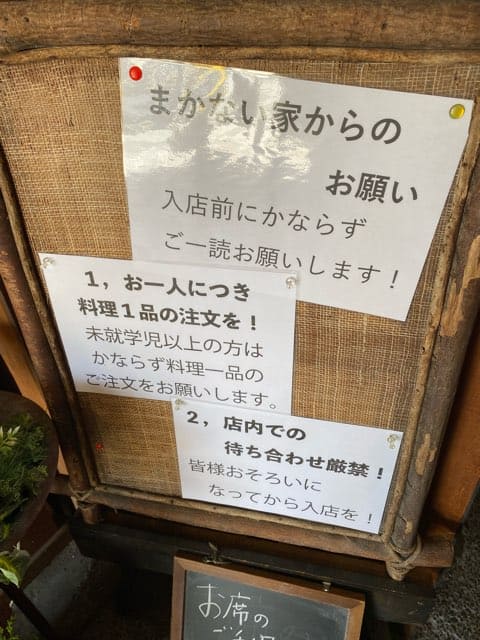 まかない家からの
お願い
入店前にかならず
ご一読お願いします！
1，お一人につき
料理1品の注文を！
未就学児以上の方は
かならず料理一品の
ご注文をお願いします。
2，店内での
待ち合わせ厳禁！
皆様おそろいに
なってから入店を！
お席の